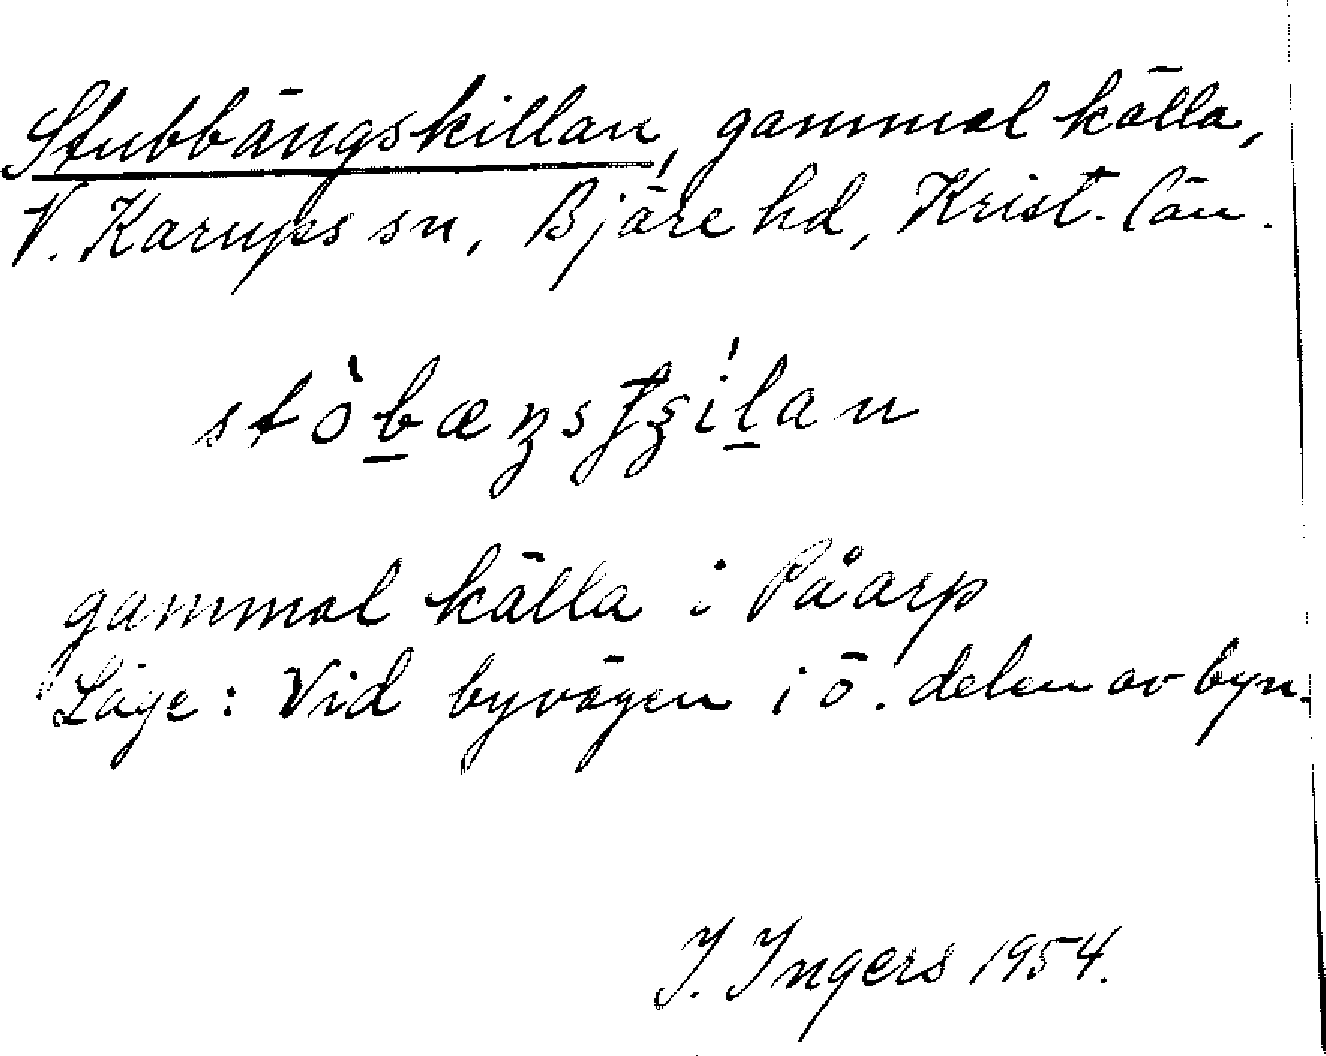 Stubbängskillan, gammal källa,
V. Karups sn, Bjäre hd, Krist. län.
gammal källa i Påarp
Läge: Vid byvägen i ö. delen av byn.
I. Ingers 1954.